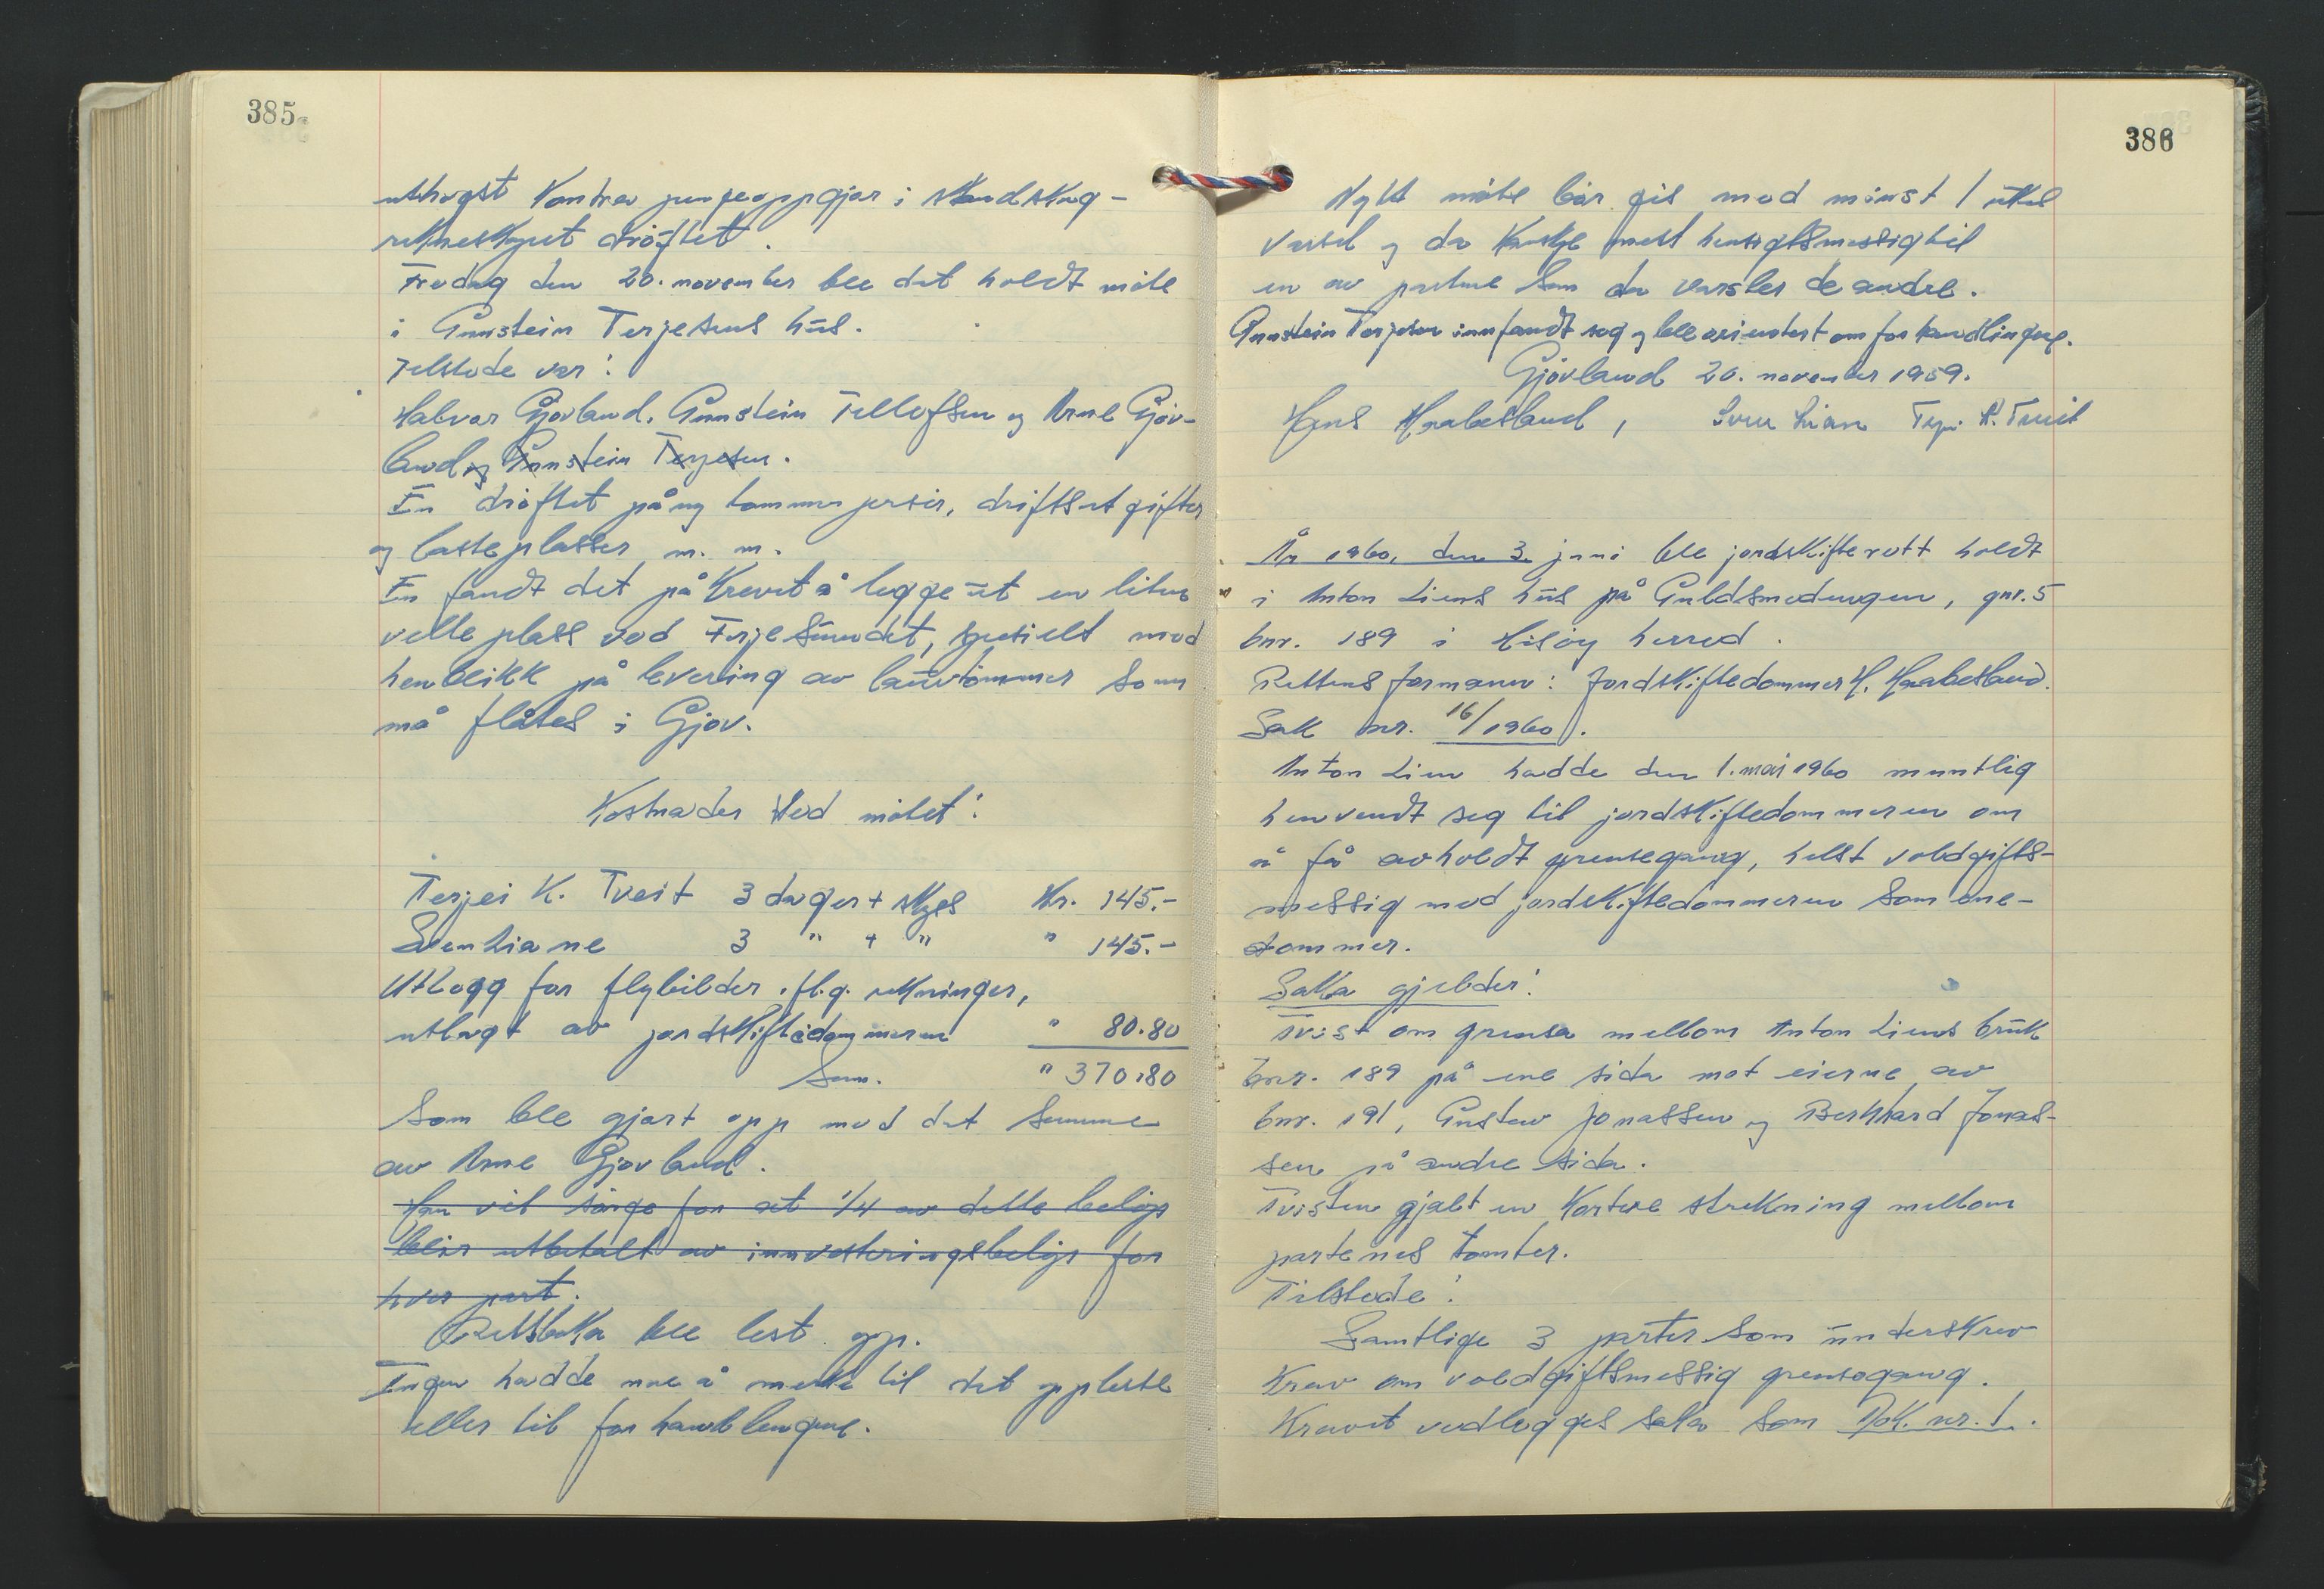 385
uthogst kontra pengeoppgjør i skog-
drøftet.
Fredag den 20. november ble det holdt møte
i Gunstein Terjesens hus.
Tilstede var:
Halvor Gjøvland, Gunstein Tellefsen og Arne Gjøv-
land og Gunstein Terjesen.
En drøftet på ny tømmer, driftsutgifter
og lasteplasser m. m.
En fandt det påkrevet å legge ut en liten
velleplass ved Ferjesundet, spesielt med
henblikk på levering av lauvtømmer som
må flåtes i Gjøv.
Kostnader ved møtet:
Terjei K. Tveit 3 dager + skyss Kr. 145.-
Sven Liane 3 " + " " 145.-
Utlegg for flybilder ifl.g. rekninger,
utlagt av jordskiftedommeren " 80.80
Sum. " 370.80
Som ble gjort opp med det samme
av Arne Gjøvland.
Han vil sørge for at 1/4 av dette beløp
blir utbetalt av innvesteringsbeløp for
hver part.
Rettsboka ble lest opp.
Ingen hadde noe å merke til det oppleste
eller til forhandlingene.
386
Nytt møte bør gis med minst 1 ukes
varsel og da kanskje mest hensigtsmessig til
en av partene som da varsler de andre.
Gunstein Terjesen innfandt seg og ble orientert om forhandlingene.
Gjøvland 20. november 1959.
Hans Haabesland, Sven Liane Terjei K. Tveit
År 1960, den 3. juni ble jordskifterett holdt
i Anton Liens hus på Guldsmedengen, gnr. 5
bnr. 189 i Hisøy herred.
Rettens formann: Jordskiftedommer H. Haabesland.
Sak nr. 16/1960.
Anton Lien hadde den 1. mai 1960 muntlig
henvendt seg til jordskiftedommeren om
å få avholdt grensegang, helst voldgifts-
messig med jordskiftedommeren som ene-
dommer.
Saka gjelder:
Tvist om grensa mellom Anton Liens bruk
bnr. 189 på ene sida mot eierne av
bnr. 191, Gustav Jonassen og Bernhard Jonas-
sen på andre sida.
Tvisten gjalt en kortere strekning mellom
partenes tomter.
Tilstede:
Samtlige 3 parter som underskrev
krav om voldgiftsmessig grensegang.
Kravet vedlegges saka som Dok. nr. 1.